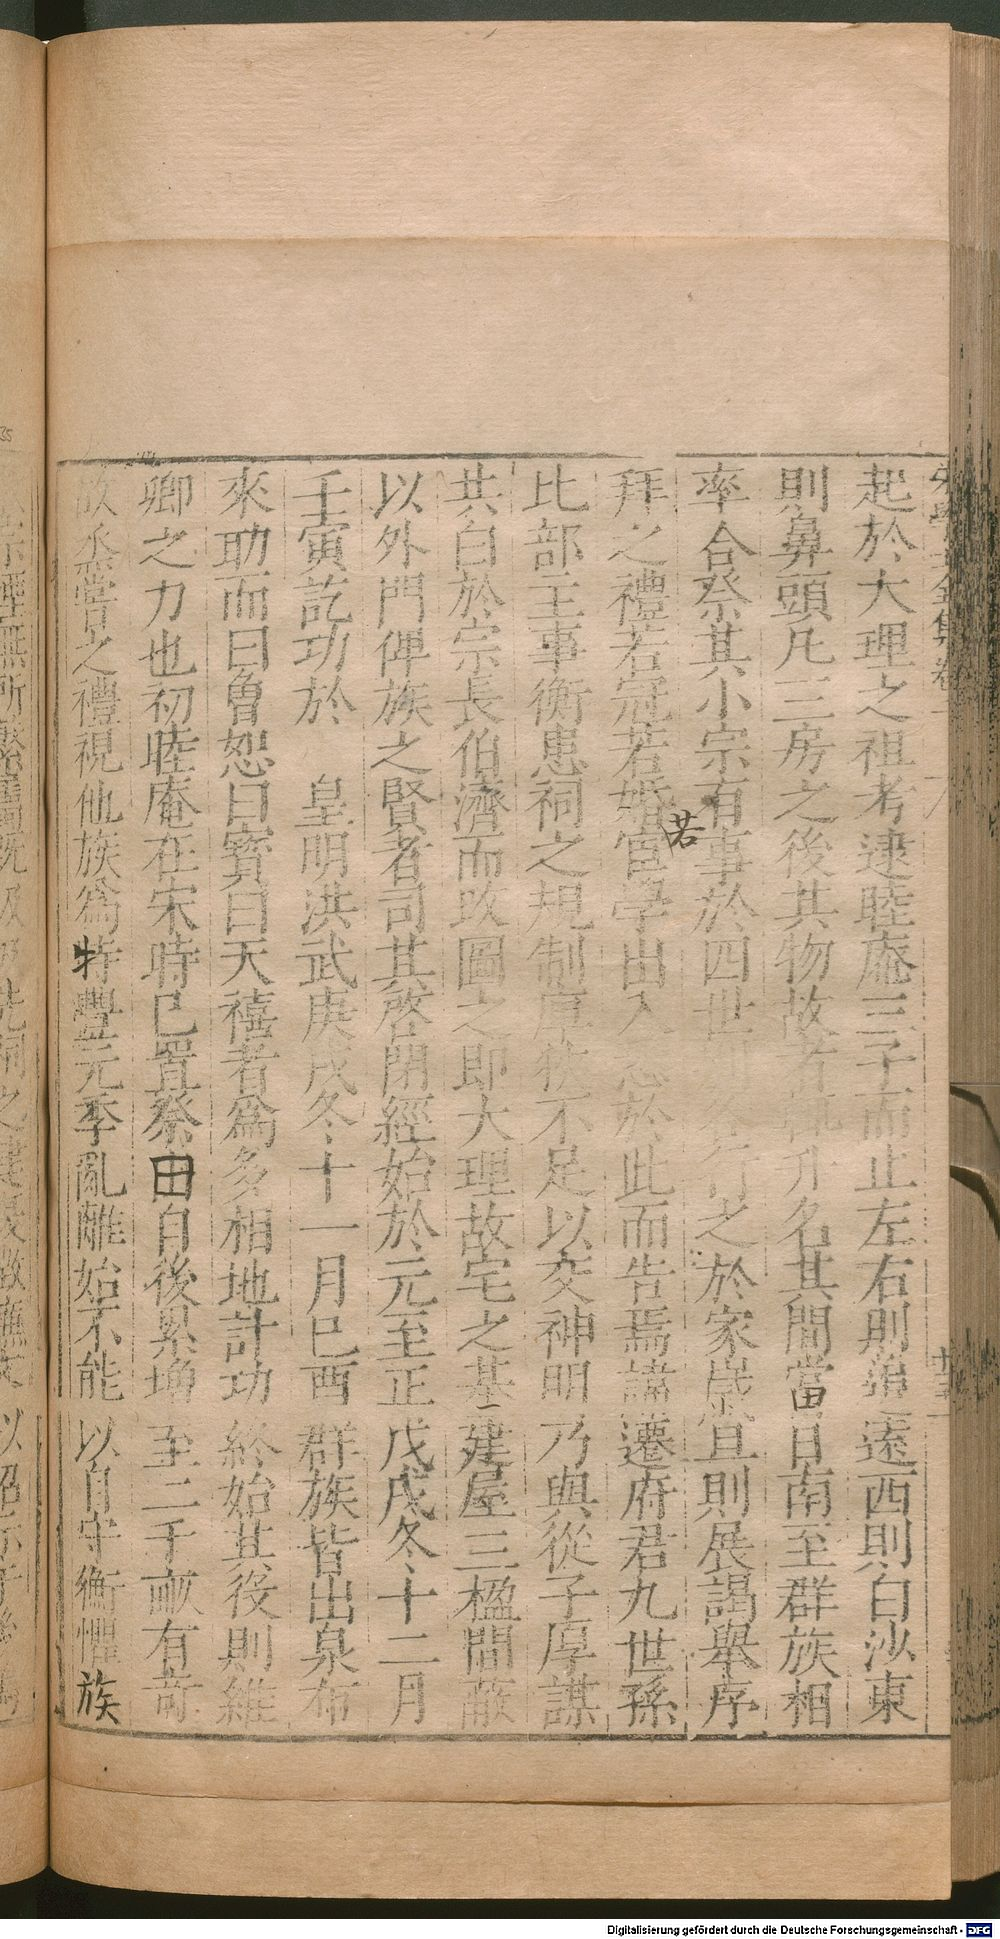 起於大理之祖考逮睦庵三子而止左右則蒲邊西則白沙東
則鼻頭凡三房之後其物故者升名其間當日南至群族相
率合祭其小宗有事於四世行之於家歲旦則展謁舉序
拜之禮若冠若婚若宦學出入於此而告焉諸遷府君九世孫
比部主事衡患祠之規制厚狹不足以交神明乃與從子厚謀
共白於宗長伯濟而改圖之即大理故宅之基建屋三楹間蔽
以外門俾族之賢者司其啓閉經始於元至正戊戌冬十二月
壬寅訖功於皇明洪武庚戌冬十一月巳酉群族皆出泉布
來助而曰魯恕曰寳曰天禧者為多相地計功終始其役則維
卿之力也初睦庵在宋時巳置蔡田自後累增至二千畝有奇
故烝嘗之禮視他族為特豐元季亂離始不能以自守衡懼族
Digitalisierung gefördert durch die Deutsche Forschungsgemeinschaft - DFG